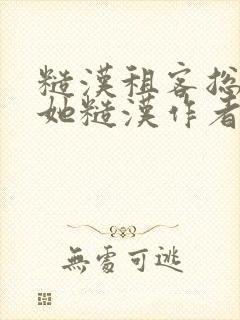 糙漢租客総
她糙漢作者
無處可逃